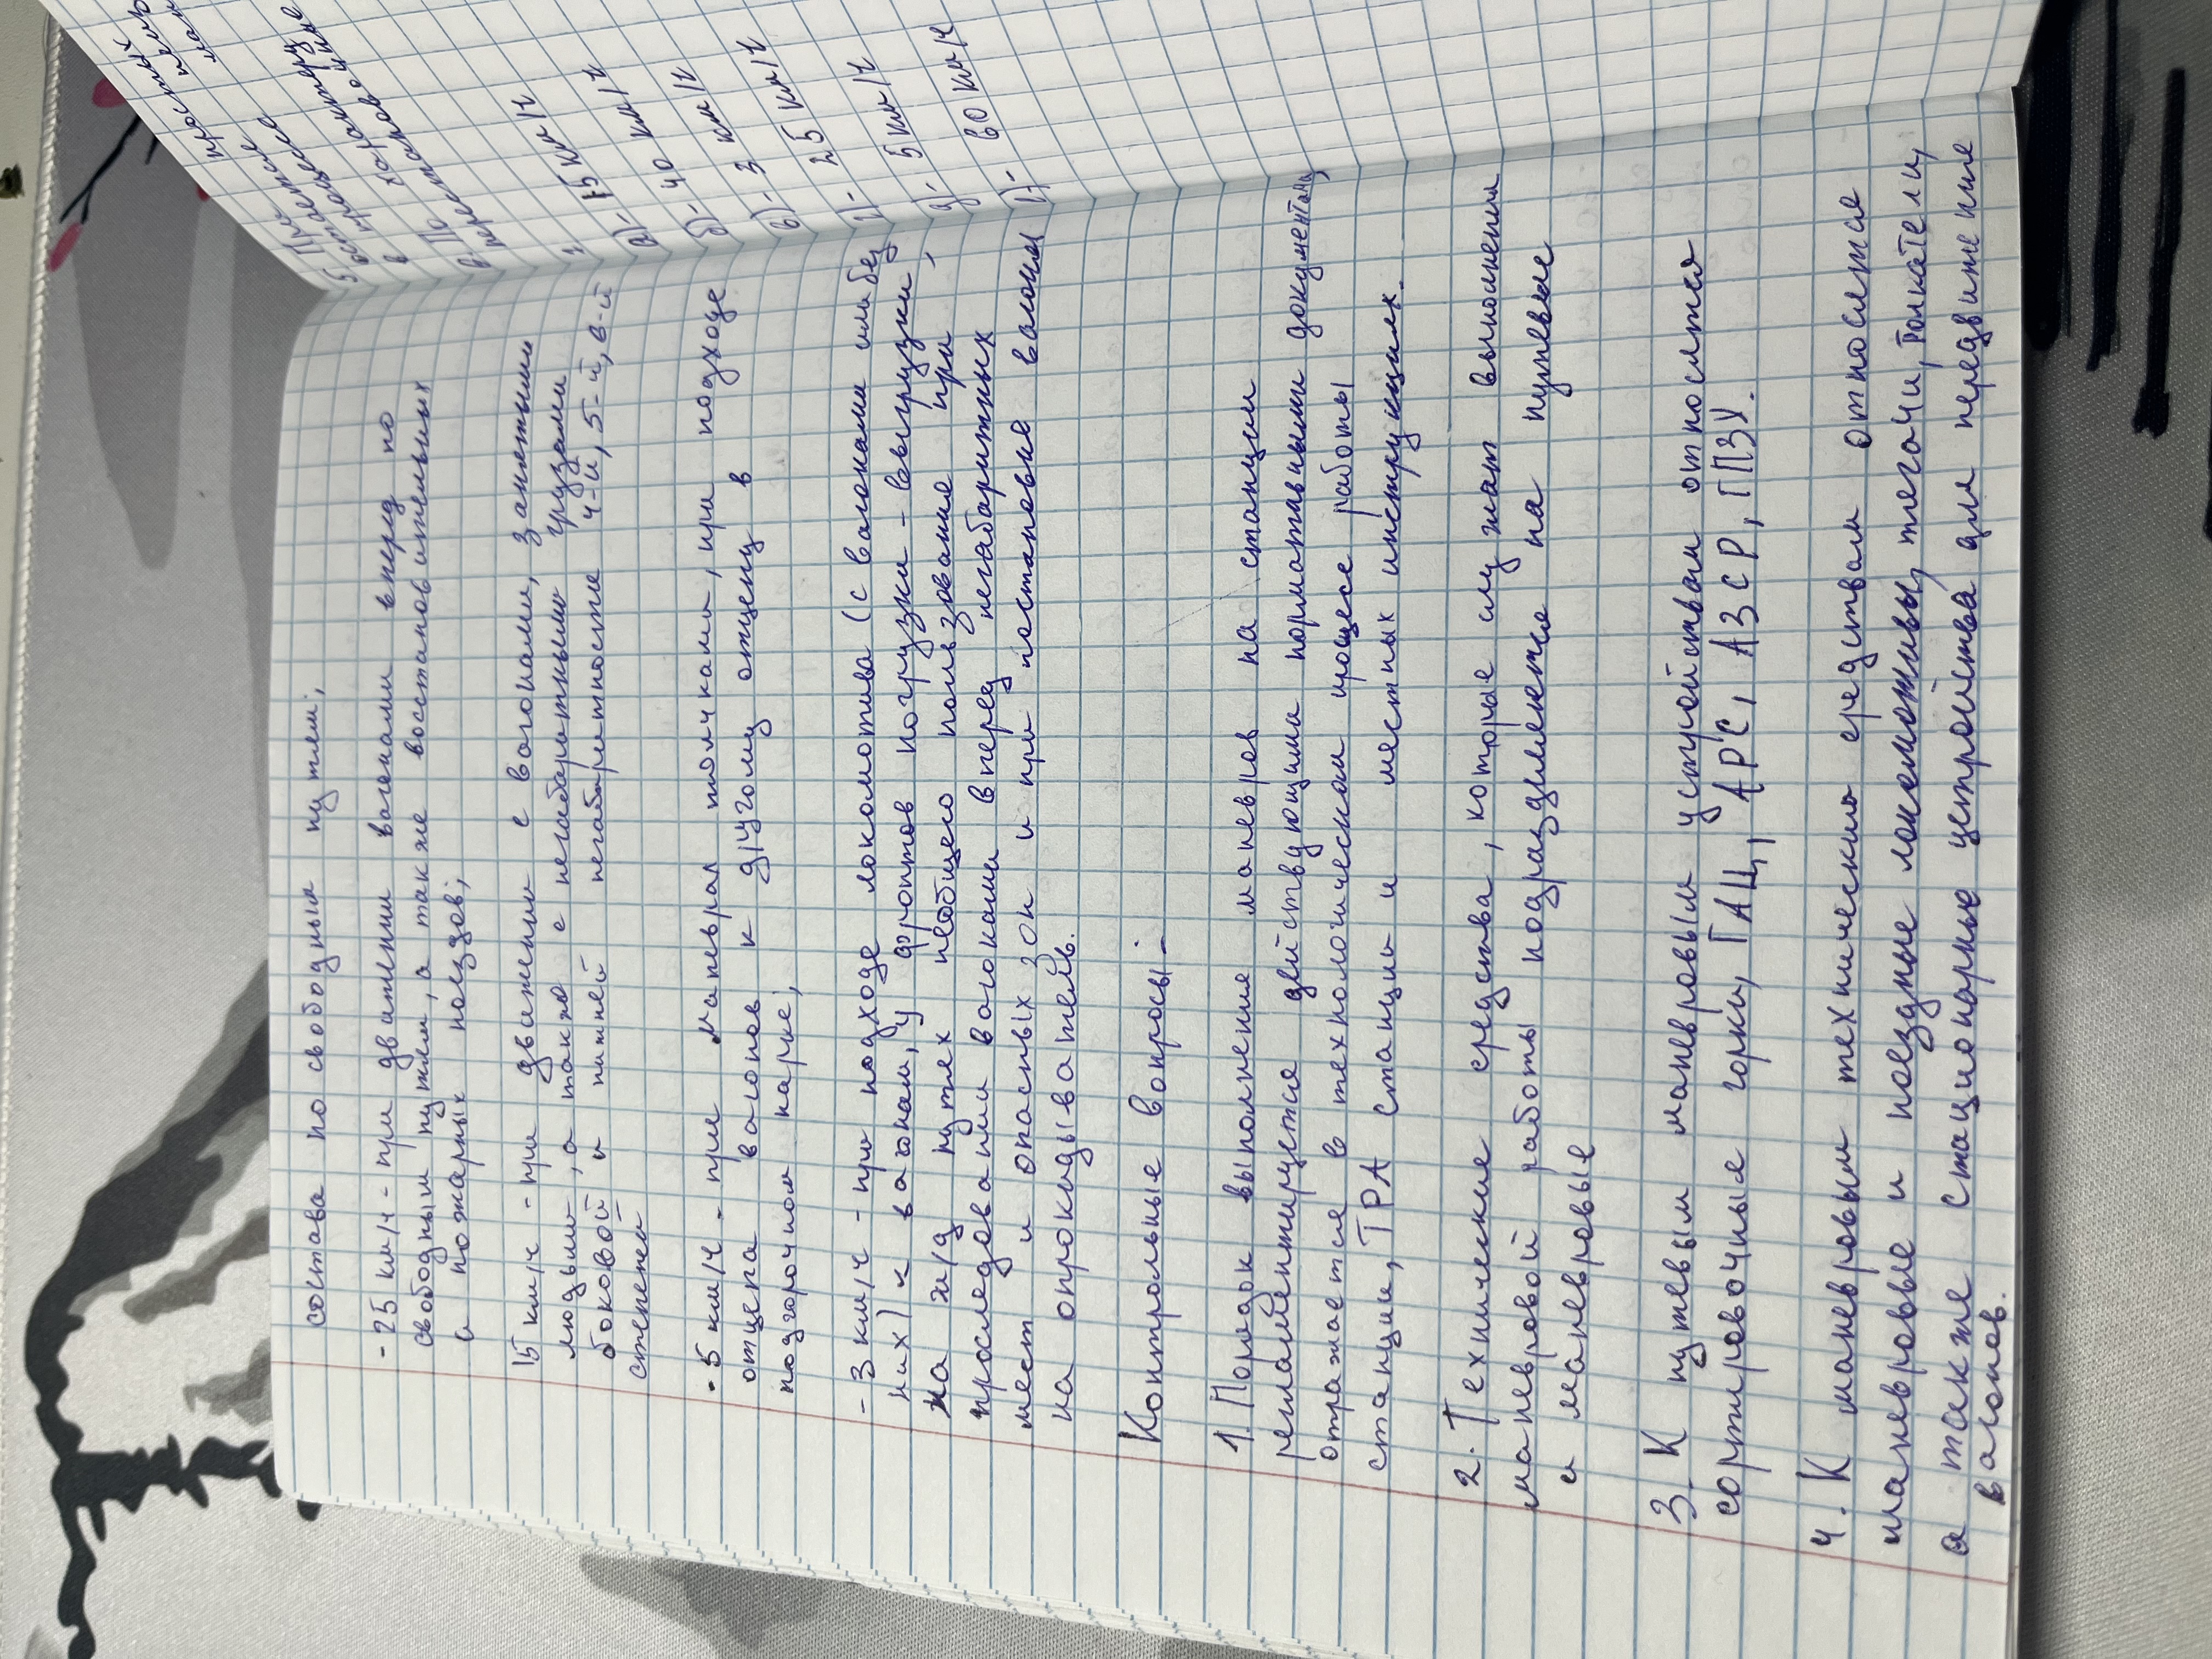 состава по свободным путям;
- 25 км/ч - при движении вагонами вперед по
свободным путям, а также восстановительных
и пожарных поездов;
15 км/ч - при движении с вагонами, занятыми
людьми, а также с негабаритными грузами
боковой и нижней негабаритности 4-й, 5-й, 6-й
степеней
- 5 км/ч - при маневрах толчками, при подходе
отцепа вагонов к другому отцепу в
подгорочном парке;
- 3 км/ч - при подходе локомотива (с вагонами или без
них) к вагонам, у фронтов погрузки - выгрузки,
на ж/д путях необщего пользование при
проследовании вагонами вперед негабаритных
мест и опасных зон и при постановке вагона
на опрокидыватель.
Контрольные вопросы:
1. Порядок выполнение маневров на станции
регламентируется действующими нормативными документами,
отражается в технологическом процессе работы
станции, ТРА станции и местных инструкциях.
2. Технические средства, которые служат выполнении
маневровой работы подразделяется на путевые
и маневровые
3. К путевым маневровым устройствам относится
сортировочные горки, ГАЦ, АРС, АЗСР, ГПЗУ.
4. К маневровым техническим средствам относится
маневровые и поездные локомотивы, тягачи, толкатели,
а также стационарные устройства для передвижение
вагонов.
5.
в
6. По
а) - 15 км/ч
б) - 40 км/ч
в) - 3 км/ч
г) - 25 км/ч
д) - 5 км/ч
е) - 60 км/ч